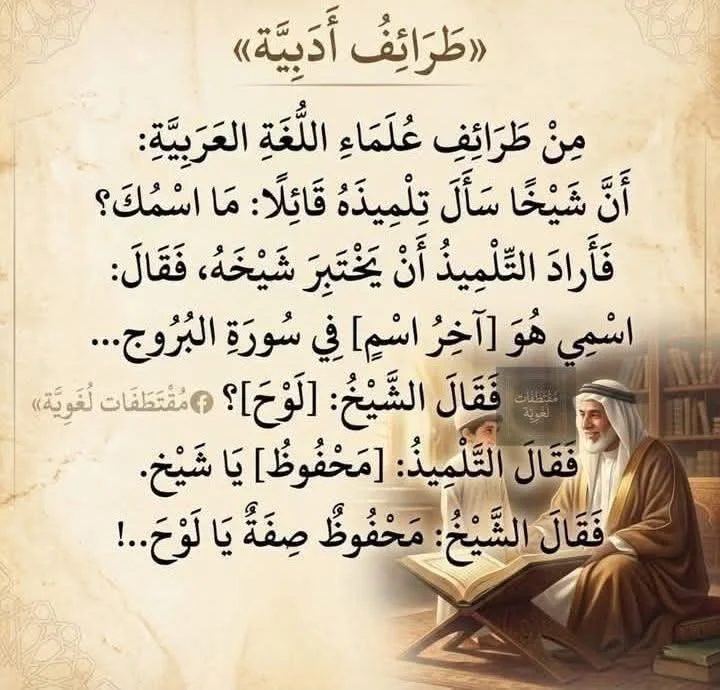 «طَرَائِفُ أَدَبِيَّة»
مِنْ طَرَائِفِ عُلَمَاءِ اللُّغَةِ العَرَبِيَّةِ:
أَنَّ شَيْخًا سَأَلَ تِلْمِيذَهُ قَائِلًا: مَا اسْمُكَ؟
فَأَرادَ التِّلْمِيذُ أَنْ يَخْتَبِرَ شَيْخَهُ، فَقَالَ:
اسْمِي هُوَ [آخِرُ اسْمٍ] فِي سُورَةِ البُرُوج...
فَقَالَ الشَّيْخُ: [لَوْحَ]؟
مُقْتَطَفَات لُغَوِيَّة»
مُقْتَطَفَات
لُغَوِيَّة
فَقَالَ التَّلْمِيذُ: [مَحْفُوظُ] يَا شَيْخ.
فَقَالَ الشَّيْخُ: مَحْفُوظٌ صِفَةٌ يَا لَوْحَ..!